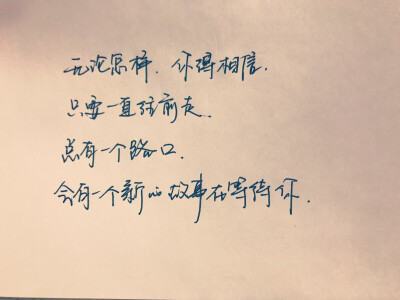 无论怎样，你得相信．
只要一直往前走．
总有一个路口．
会有一个新的故事在等待你．